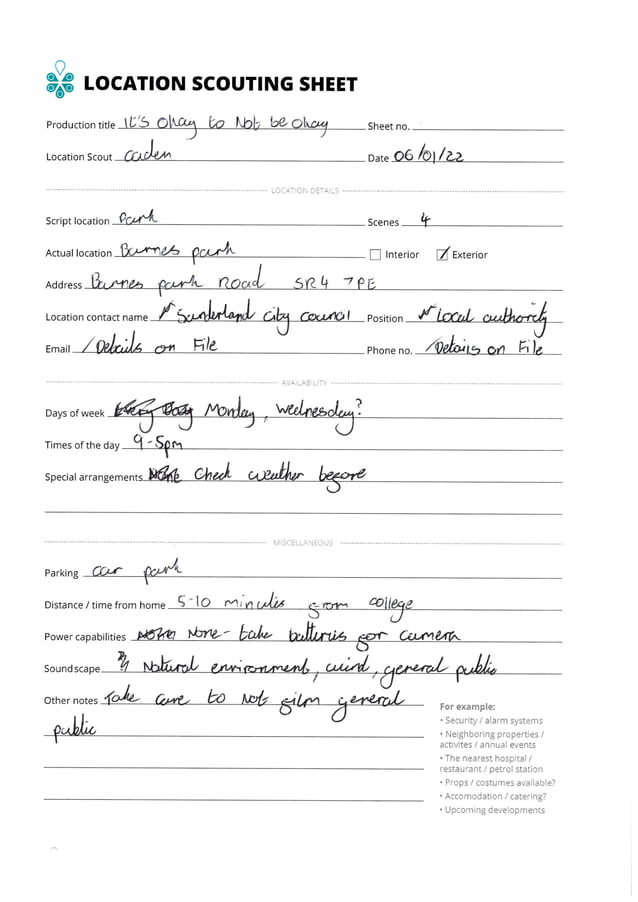 LOCATION SCOUTING SHEET
Production title It's Okay to Not be Okay Sheet no.
Location Scout Caden Date 06/01/22
LOCATION DETAILS
Script location Park Scenes 4
Actual location Barnes park Interior Exterior
Address Barnes park Road SR4 7PE
Location contact name Sunderland City Council Position Local authority
Email /Details on File Phone no. /Details on File
AVAILABILITY
Days of week Every Day Monday, Wednesday?
Times of the day 9-5pm
Special arrangements None Check weather before
MISCELLANEOUS
Parking car park
Distance / time from home 5-10 minutes from college
Power capabilities None - take batteries for camera
Soundscape Natural environment, wind, general public
Other notes Take care to not film general
public
For example:
• Security / alarm systems
• Neighboring properties /
activites / annual events
• The nearest hospital /
restaurant / petrol station
• Props / costumes available?
• Accomodation / catering?
• Upcoming developments